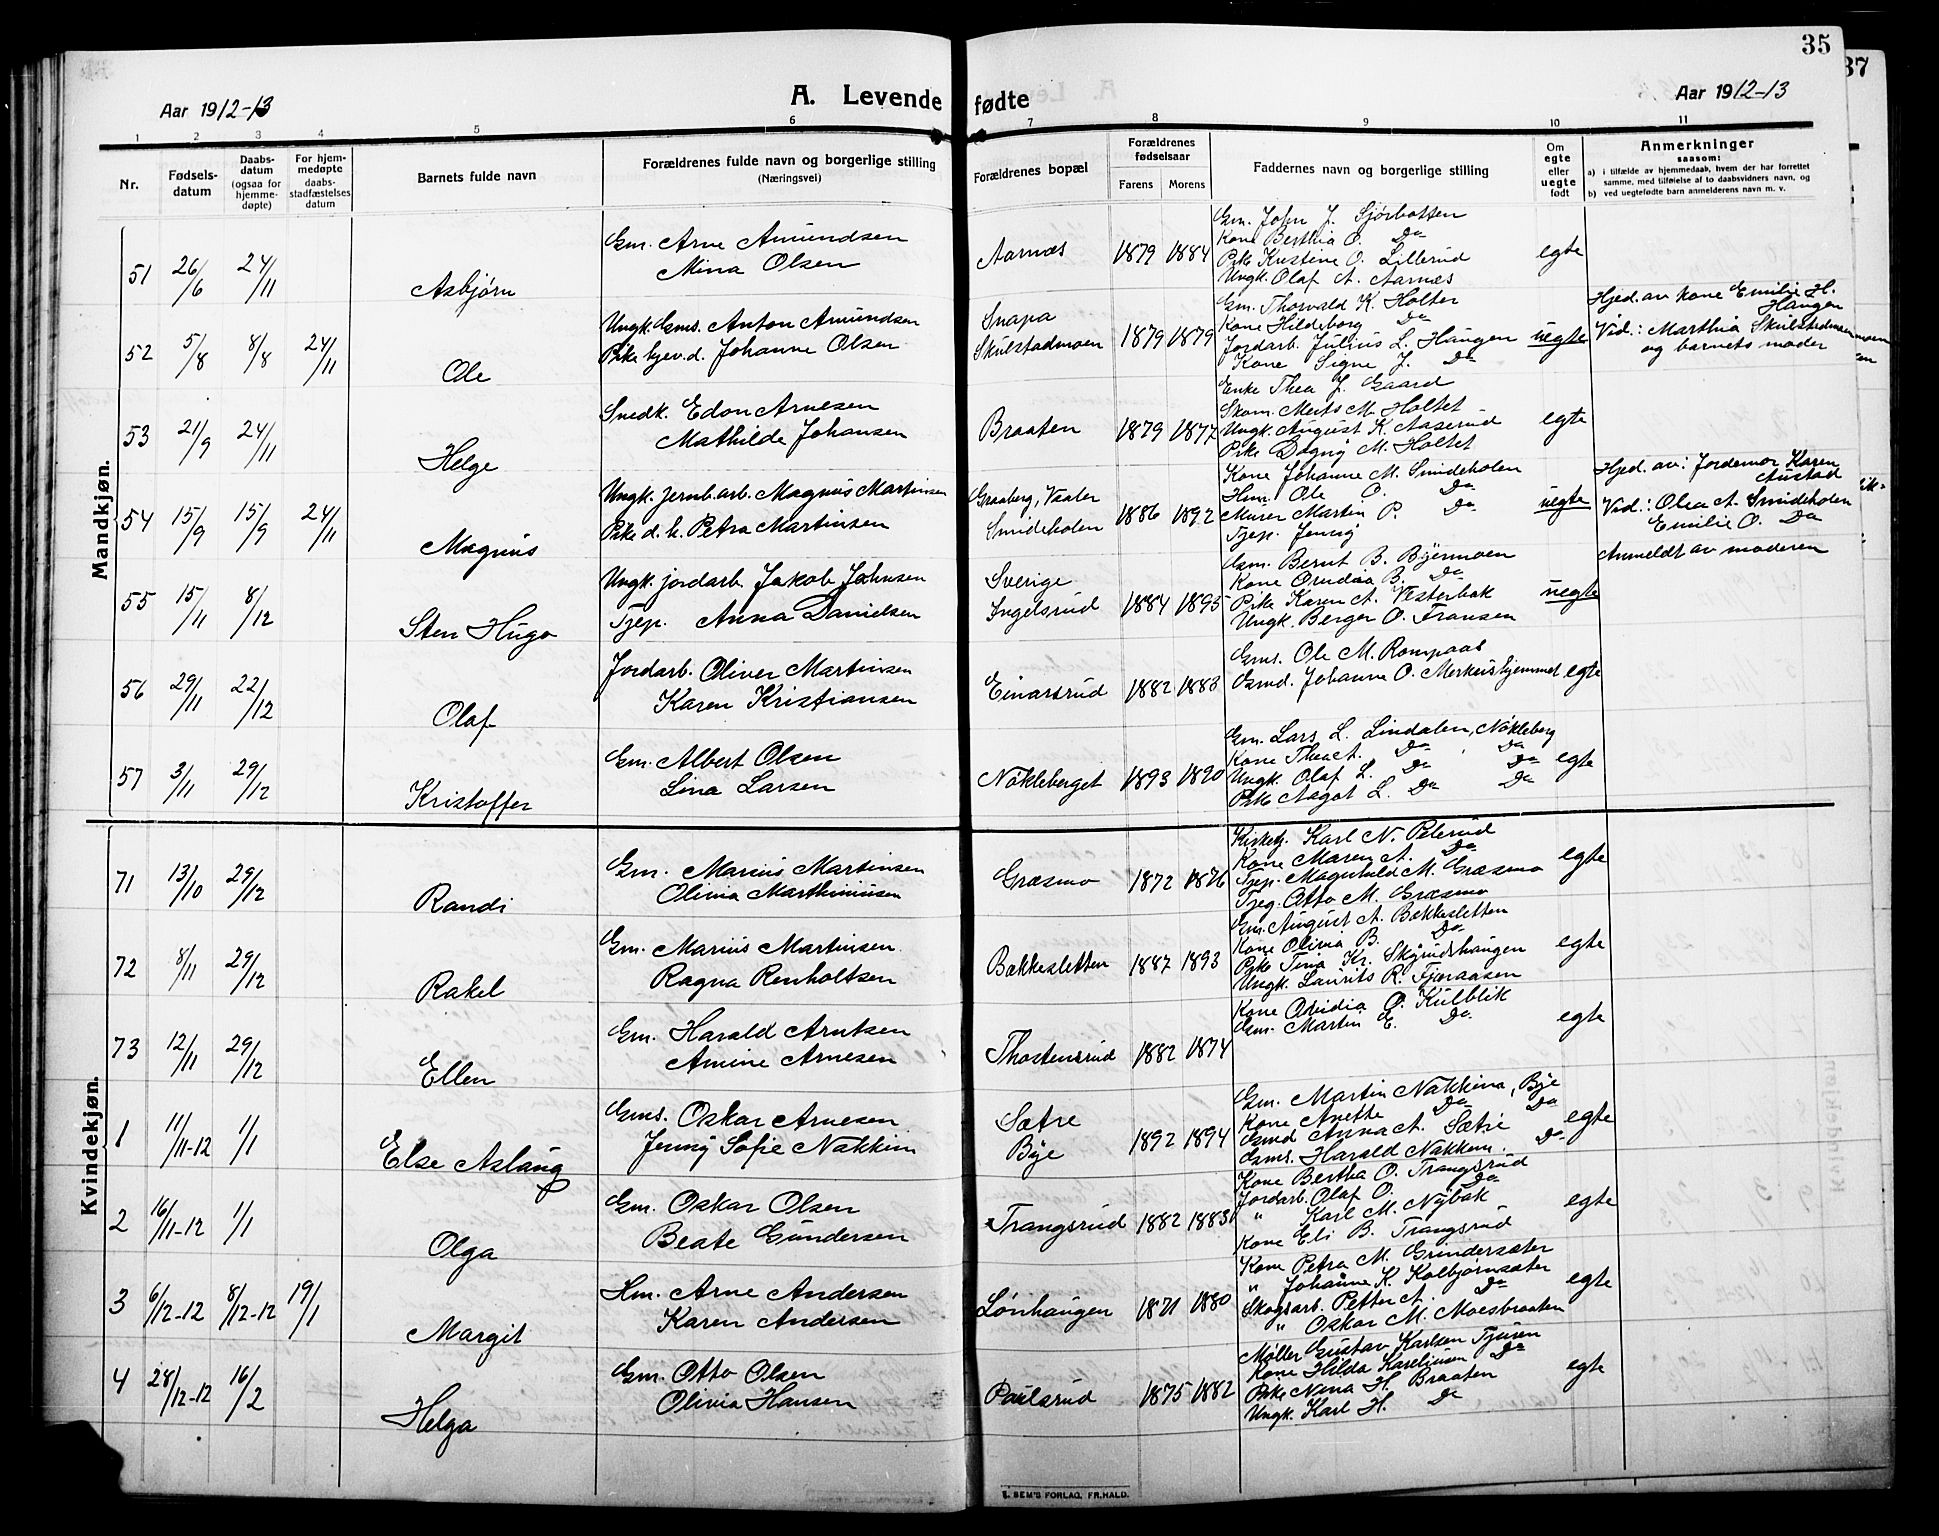 35
37
Aar 1912-13
A. Levende fødte
Aar 1912-13
1 2 3 4 5 6 7 8 9 10 11
Nr.
Fødsels-datum
Daabs-datum (ogsaa for hjemme-døpte)
For hjem-medøpte daabs-stadfæstelses datum
Barnets fulde navn
Forældrenes fulde navn og borgerlige stilling
(Næringsvei)
Forældrenes bopæl
Forældrenes fødselsaar
Farens Morens
Faddernes navn og borgerlige stilling
Om egte eller uegte født
Anmerkninger
saasom:
a) i tilfælde av hjemmedaab, hvem der har forrettet samme, med tilføielse af to daabsvidners navn, og
b) ved uegtefødte barn anmelderens navn m. v.
Mandkjøn.
51 26/6 24/11 Asbjørn
Gm. Arne Amundsen
Mina Olsen
Aarnæs 1879 1884
Gm. John J. Sjørbotten
Kone Berthia O. Do
Pike Kristine O. Lillerud
Ungk. Olaf A. Aarnæs
egte
52 5/8 8/8 24/11 Ole
Ungk. Gms. Anton Amundsen
Pike hjev.d. Johanne Olsen
Snapa
Skulstadmoen 1879 1879
Gm. Thorvald K. Holter
Kone Hildeborg Do
Jordarb. Julius L. Haugen
Kone Signe J. Do
uegte
Hjed. av kone Emilie H. Haugen
Vid.: Marthia Skulstadmoen
og barnets moder
53 21/9 24/11 Helge
Snedk. Edon Arnesen
Mathilde Johansen
Braaten 1879 1877
Enke Thea J. Gaard
Skom. Merts M. Holtet
Ungk. August K. Aaserud
Pike Dagny M. Holtet
egte
54 15/9 15/9 24/11 Magnus
Ungk. jernb.arb. Magnus Martinsen
Pike d. h. Petra Martinsen
Graaberg, Vaaler
Smideholen 1886 1892
Kone Johanne M. Smideholen
Hm. Ole O. Do
Murer Martin P. Do
Tjep. Jenny
uegte
Hjed. av: Jordemor Karen Austad
Vid.: Olea A. Smideholen
Emilie O. Do
55 15/11 8/12 Sten Hugo
Ungk. jordarb. Jakob Johnsen
Tjep. Anna Danielsen
Sverige
Ingelsrud 1884 1895
Gsm. Bernt B. Byermoen
Kone Orudia B. Do
Pike Karen A. Vesterbak
Ungk. Berger O. Fransen
uegte
Anmeldt av moderen
56 29/11 22/12 Olaf
Jordarb. Oliver Martinsen
Karen Kristiansen
Einarsrud 1882 1883
Gms. Ole M. Rompaas
Gsmd. Johanne O. Merkushjemmet
egte
57 3/11 29/12 Kristoffer
Gm. Albert Olsen
Lina Larsen
Nøkleberget 1893 1890
Gm. Lars L. Lindalen, Nøkleberg
Kone Thea A. Do Do
Ungk. Olaf L. Do Do
Pike Aagot L. Do Do
egte
Kvindekjøn.
71 13/10 29/12 Randi
Gm. Marius Martinsen
Olivia Marthiniusen
Græsmo 1872 1876
Kirketj. Karl N. Pelerud
Kone Maren A. Do
Tjep. Magnhild M. Græsmo
Tjeg. Otto M. Græsmo
egte
72 8/11 29/12 Rakel
Gm. Marius Martinsen
Ragna Renholtsen
Bækkesletten 1887 1893
Gm. August A. Bækkesletten
Kone Olivia B. Do
Pike Tina Kr. Skyrudshaugen
Ungk. Laurits R. Fjeraasen
egte
73 12/11 29/12 Ellen
Gm. Harald Arntsen
Amine Arnesen
Thostensrud 1882 1874
Kone Ovidia O. Kulblik
Gm. Martin E. Do
egte
1 11/11-12 1/1 Else Aslaug
Gms. Oskar Arnesen
Jenny Sofie Nakkim
Sætre
Bye 1892 1894
Gm. Martin Nakkim, Bye
Kone Anette Do Do
Gsmd Anna A. Sætre
Gsms. Harald Nakkem. Do
egte
2 16/11-12 1/1 Olga
Gm. Oskar Olsen
Beate Gundersen
Trangsrud 1882 1883
Kone Bertha O. Trangsrud
Jordarb. Olaf O. Do
" Karl M. Nybak
Kone Eli B. Trangsrud
egte
3 6/12-12 8/12-12 19/1 Margit
Hm. Arne Andersen
Karen Andersen
Lønhaugen 1871 1880
Kone Petra M. Grindersæter
" Johanne K. Kolbjørnsæter
Skogsarb. Petter A. Do
" Oskar M. Moesbraaten
egte
4 28/12-12 16/2 Helga
Gm. Otto Olsen
Olivia Hansen
Paulsrud 1875 1882
Møller Gustav Karlsen Tjuren
Kone Hilda Kareliusen Do
Pike Nina H. Braaten
Ungk. Karl H. Do
egte
E. SEM'S FORLAG, FR.HALD.